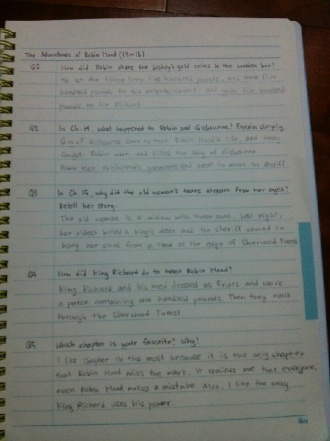 The Adventures of Robin Hood (13~16)
Q1 How did Robin share the bishop's gold coins in the wooden box?
He let the bishop keep five hundred pounds, and took five
hundred pounds for the entertainment, and give five hundred
pounds to Sir Richard.
Q2 In Ch. 14, what happened to Robin and Gisbourne? Explain simply.
Guy of Gisbourne came to take Robin Hood's life, and they
fought. Robin won and killed the Guy of Gisbourne.
Robin took Gisbourne's garments and went to meet the sheriff
Q3 In Ch. 15, why did the old woman's tears stream from her eyes?
Retell her story.
The old woman is a widow with three sons. Last night,
her oldest killed a king's deer and the sheriff vowed to
hang her sons from a tree at the edge of Sherwood Forest
Q4 How did King Richard do to meet Robin Hood?
King Richard and his men dressed as friars and wore
a purse containing one hundred pounds. Then they rode
through the Sherwood Forest
Q5 Which chapter is your favorite? Why?
I like chapter 16 the most because it is the only chapter
that Robin Hood miss the mark. It reminds me that everyone,
even Robin Hood makes a mistake. Also, I like the way
King Richard uses his power.